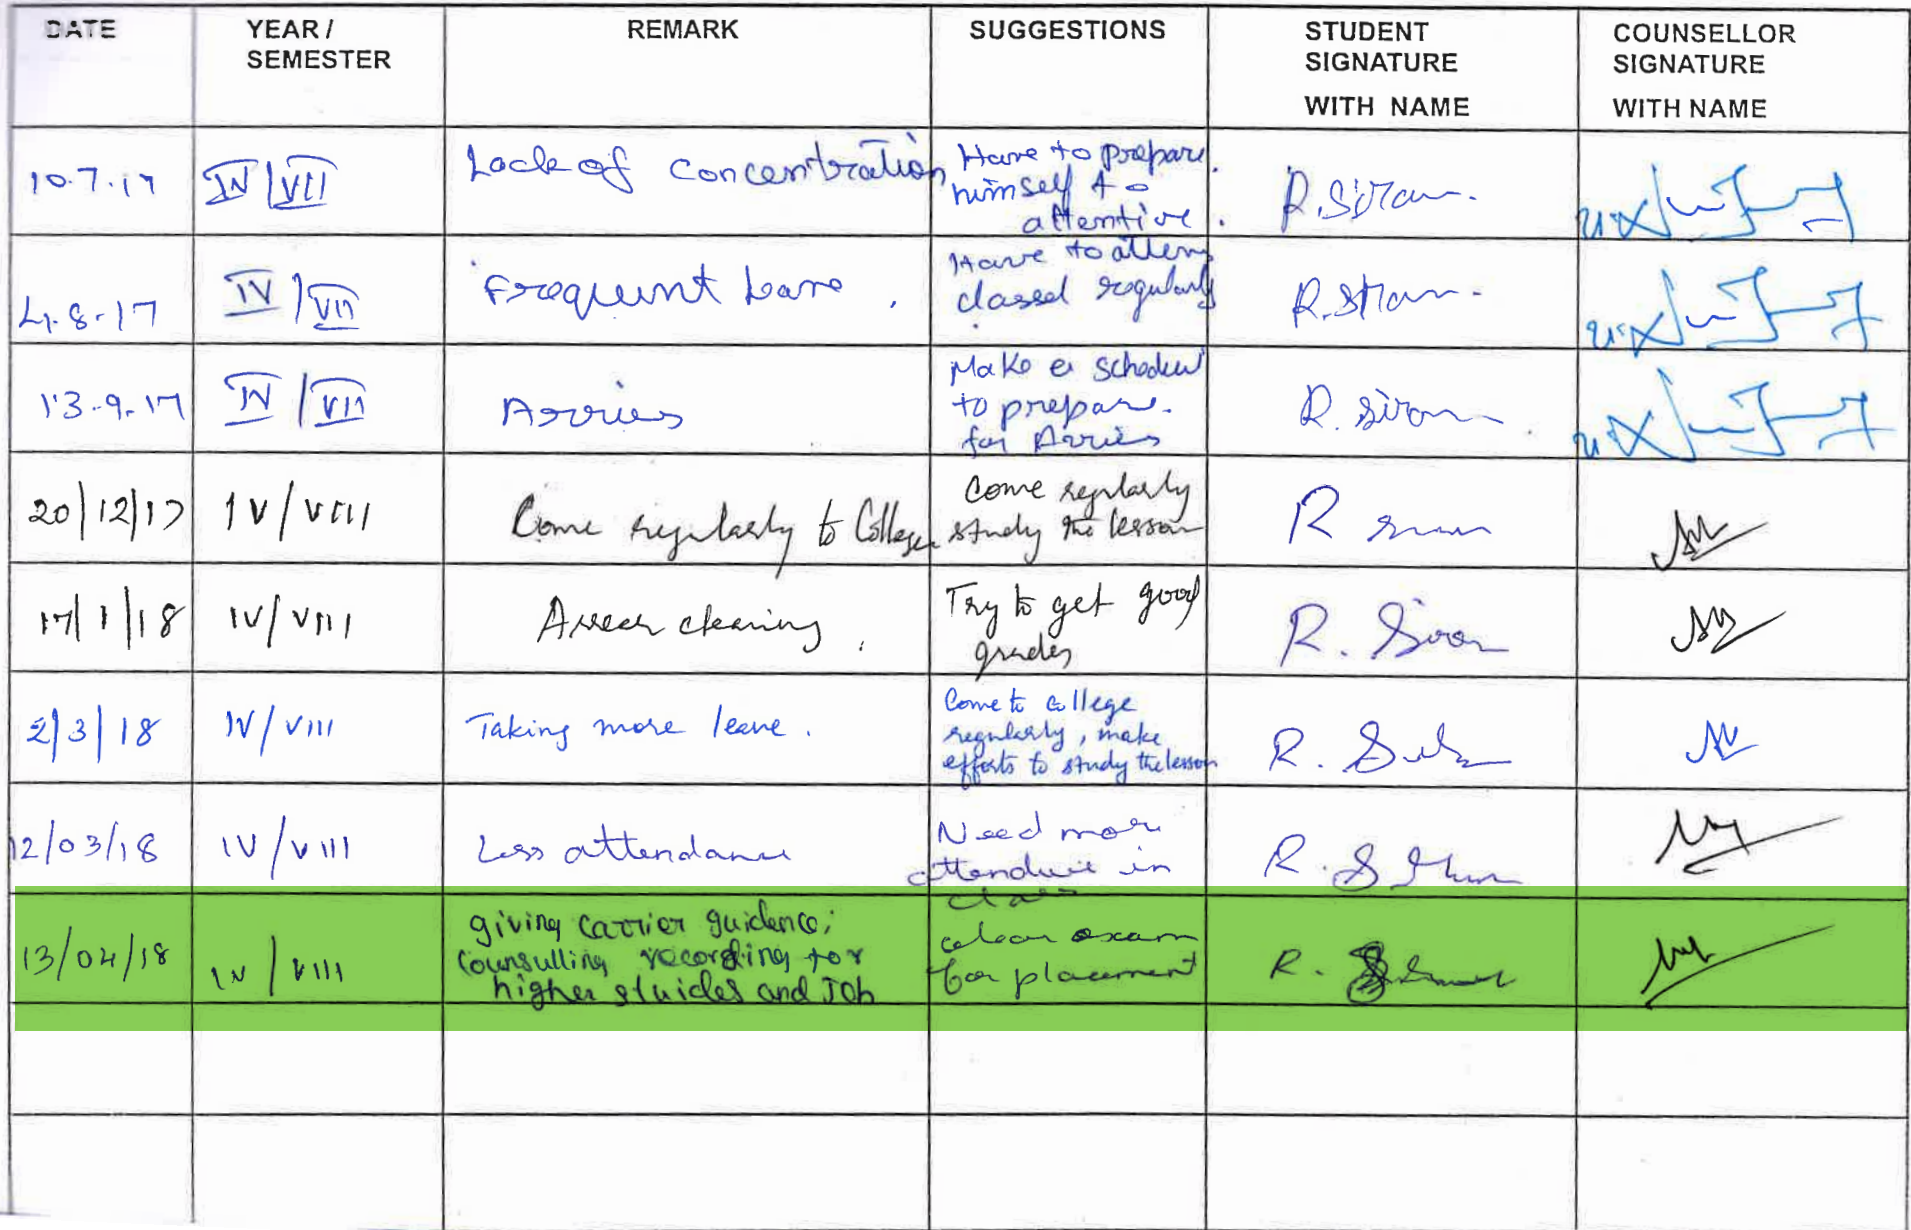 DATE
YEAR /
SEMESTER
REMARK
SUGGESTIONS
STUDENT
SIGNATURE
WITH NAME
COUNSELLOR
SIGNATURE
WITH NAME
10.7.17
IV / VII
Lack of Concentration
Have to prepare
himself to
attentive.
R. Siran.
4.8.17
IV / VII
Frequent
Have to atten
classed regularly
13.9.17
IV / VII
Arries
Make a
to prepare.
for Arries
R. Siran
20/12/17
IV/VIII
Come regularly to College
Come regularly
study the lesson
R
17/1/18
IV/VIII
Arrear clearing.
Try to get good
grades
R. Siran
2/3/18
IV/VIII
Taking more leave.
Come to college
regularly, make
efforts to study the lesson
R.
12/03/18
IV/VIII
Less attendance
Need more
in
class
R.
13/04/18
IV/VIII
giving carrier guidence;
counsulling recording for
higher stuides and Job
clear exam
for placement
R.